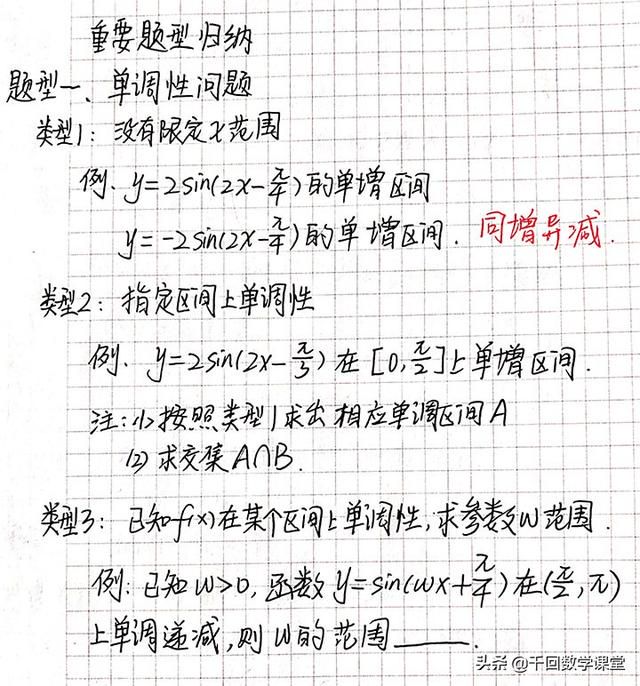 重要题型归纳
题型一、单调性问题
类型1：没有限定x范围
例、y=2sin(2x-π/4)的单增区间
y=-2sin(2x-π/4)的单增区间. 同增异减.
类型2：指定区间上单调性
例、y=2sin(2x-π/3)在[0,π/2]上单增区间.
注:(1)按照类型1求出相应单调区间A
(2)求交集A∩B.
类型3：已知f(x)在某个区间上单调性,求参数w范围.
例:已知w>0,函数y=sin(wx+π/4)在(π/2,π)
上单调递减,则w的范围____.
头条@千回数学课堂